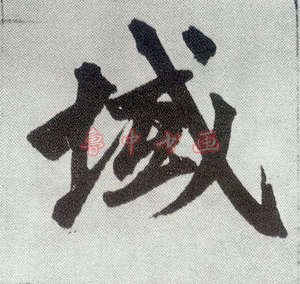 域
鲁中书画